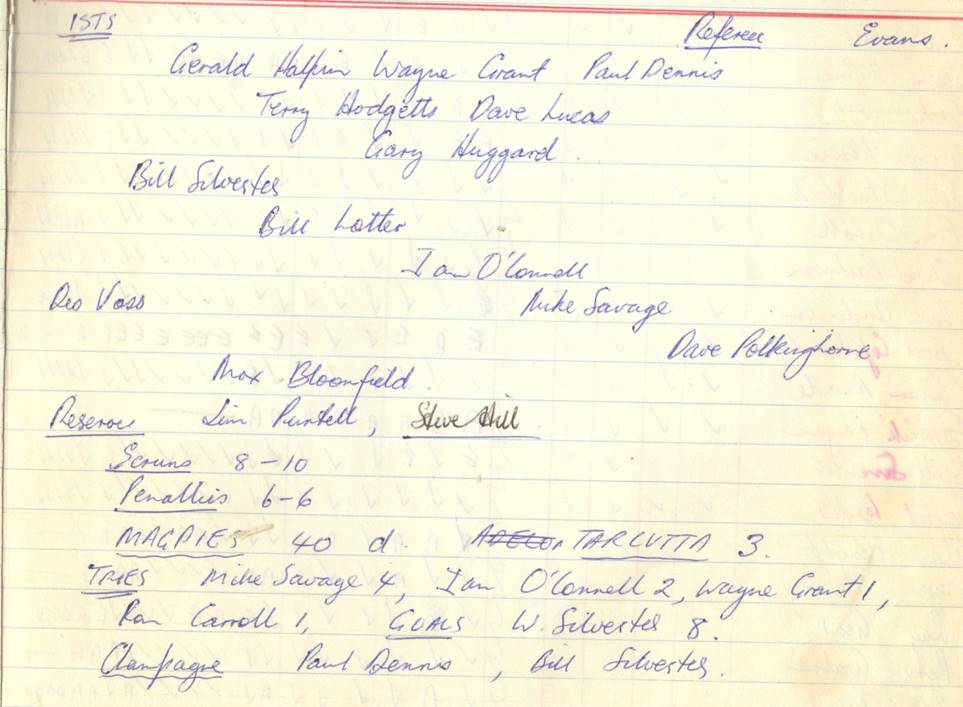 1STS Referee Evans.
Gerald Halpin Wayne Grant Paul Dennis
Terry Hodgetts Dave Lucas
Gary Huggard.
Bill Silvester
Bill Lotter
Ian O'Connell
Des Voss Mike Savage
Dave Polkinghorne
Max Bloomfield.
Reserves Jim Purtell, Steve Hill
Scrums 8-10
Penalties 6-6
MAGPIES 40 d. TARCUTTA 3.
TRIES Mike Savage 4, Ian O'Connell 2, Wayne Grant 1,
Ron Carroll 1, GOALS W. Silvester 8.
Champagne Paul Dennis, Bill Silvester.